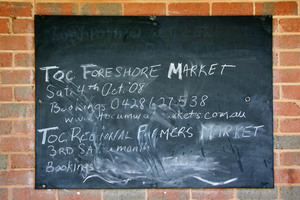 Toc Foreshore Market
Sat 4th Oct '08
Bookings 0428 627 538
www.tocumwalmarkets.com.au
Toc Regional Farmers Market
3RD SAT a month
Bookings